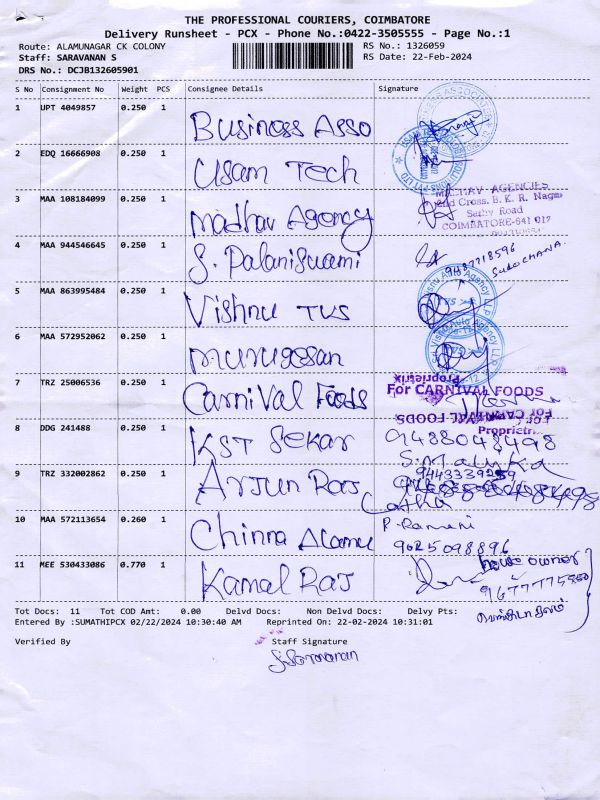 THE PROFESSIONAL COURIERS, COIMBATORE
Delivery Runsheet - PCX - Phone No.:0422-3505555 - Page No.:1
Route: ALAMUNAGAR CK COLONY RS No.: 1326059
Staff: SARAVANAN S RS Date: 22-Feb-2024
DRS No.: DCJB132605901
S No Consignment No Weight PCS Consignee Details Signature
1 UPT 4049857 0.250 1 Business Asso
2 EDQ 16666908 0.250 1 Usam Tech
3 MAA 108184099 0.250 1 Madhav Agency
MADHAV AGENCIES
2nd Cross, B. K. R. Nagar
Sathy Road
COIMBATORE-641 012
4 MAA 944546645 0.250 1 S. Palaniswami
9487718596
SULOCHANA.
5 MAA 863995484 0.250 1 Vishnu TVS
6 MAA 572952062 0.250 1 Murugesan
7 TRZ 25006536 0.250 1 Carnival Foods
Proprietrix
For CARNIVAL FOODS
For CARNIVAL FOODS
Proprietrix
8 DDG 241488 0.250 1 KST Sekar 9488048498
9 TRZ 332002862 0.250 1 Arjun Raj
S. Malika
9443339259
10 MAA 572113654 0.260 1 Chinna Alamu
P. Ramani
9025098896
11 MEE 530433086 0.770 1 Kamal Raj
house owner
Tot Docs: 11 Tot COD Amt: 0.00 Delvd Docs: Non Delvd Docs: Delvy Pts:
Entered By :SUMATHIPCX 02/22/2024 10:30:40 AM Reprinted On: 22-02-2024 10:31:01
Verified By Staff Signature
S. Saravanan